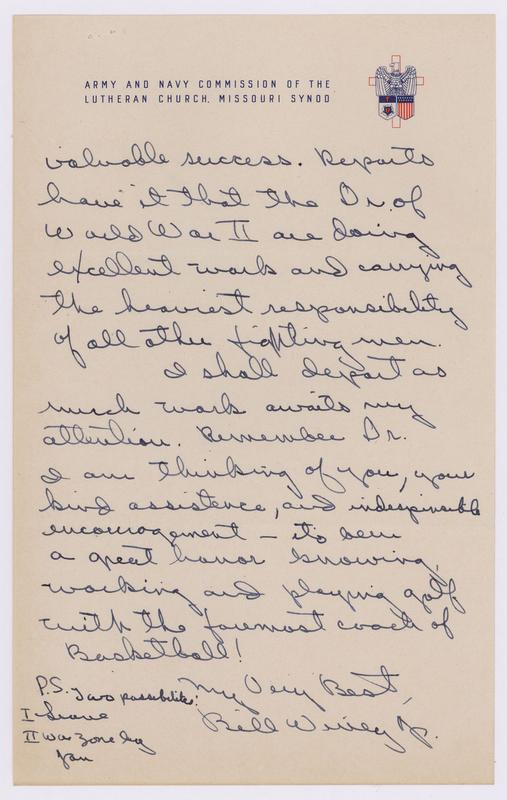 ARMY AND NAVY COMMISSION OF THE
LUTHERAN CHURCH, MISSOURI SYNOD
valuable success. Reports
have it that the Dr. of
World War II are doing
excellent work and carrying
the heaviest responsibility
of all other fighting men.
I shall depart as
much work awaits my
attention. Remember Dr.
I am thinking of you, your
kind assistence, and indespensible
encouragement – its been
a great honor knowing,
working and playing golf
with the foremost coach of
Basketball!
My Very Best,
Bill Jr.
P.S. Two possibilities:
I Leave
II War Zone by
Jan